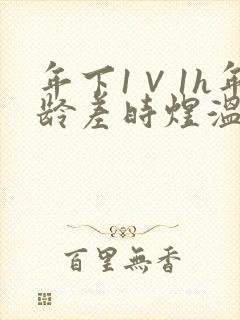 年下1∨1h年
龄差時煜溫
百里無香